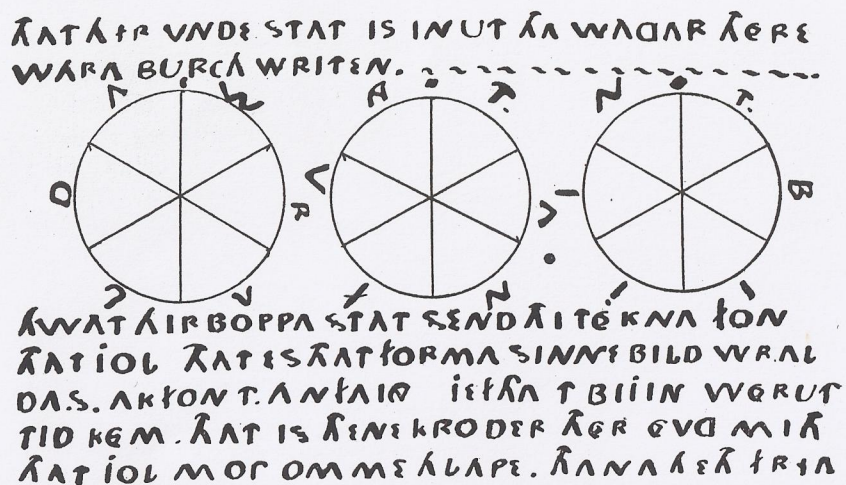 THAT HIR VNDE STAT IS IN UT THA WAGAR THERE
WARA BURCH WRITEN.
T. B I I I N
HWAT HIR BOPPA STAT SEND THI TEKNA FON
THAT JOL THAT ES THAT FORMA SINNEBILD WR.AL
DA.S. AK FON T. ANFANG JEFTHA T BIJIN WERUT
TID KEM. THAT IS THENE KRODER THER EVG MITH
THAT JOL MOT OMME HLAPE. THANA HETH FRYA